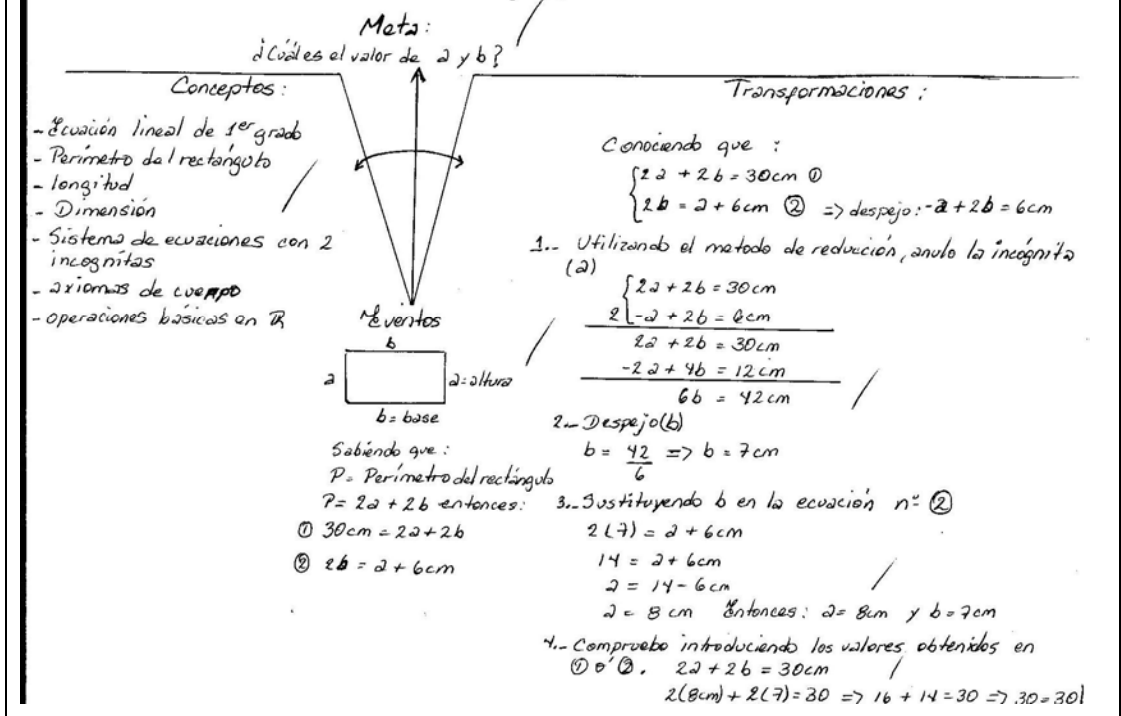 Meta:
¿Cuál es el valor de a y b?
Conceptos:
- Ecuación lineal de 1er grado
- Perímetro del rectángulo
- longitud
- Dimensión
- Sistema de ecuaciones con 2
incognitas
- axiomas de cuerpo
- operaciones básicas en ℝ
Eventos
b
a
a=altura
b=base
Sabiendo que:
P= Perímetro del rectángulo
P= 2a + 2b entonces:
① 30cm = 2a+2b
② 2b = a + 6cm
Transformaciones:
Conociendo que :
2a + 2b = 30cm ①
2b = a + 6cm ② => despejo: -a + 2b = 6cm
1.- Utilizando el metodo de reducción, anulo la incógnita
(a)
2a + 2b = 30cm
2 -a + 2b = 6cm
2a + 2b = 30cm
-2a + 4b = 12cm
6b = 42cm
2.- Despejo(b)
b = 42/6 => b = 7cm
3.- Sustituyendo b en la ecuación nº ②
2(7) = a + 6cm
14 = a + 6cm
a = 14 - 6cm
a = 8 cm Entonces: a= 8cm y b=7cm
4.- Compruebo introduciendo los valores obtenidos en
① o' ②. 2a + 2b = 30cm
2(8cm) + 2(7) = 30 => 16 + 14 = 30 => 30=30